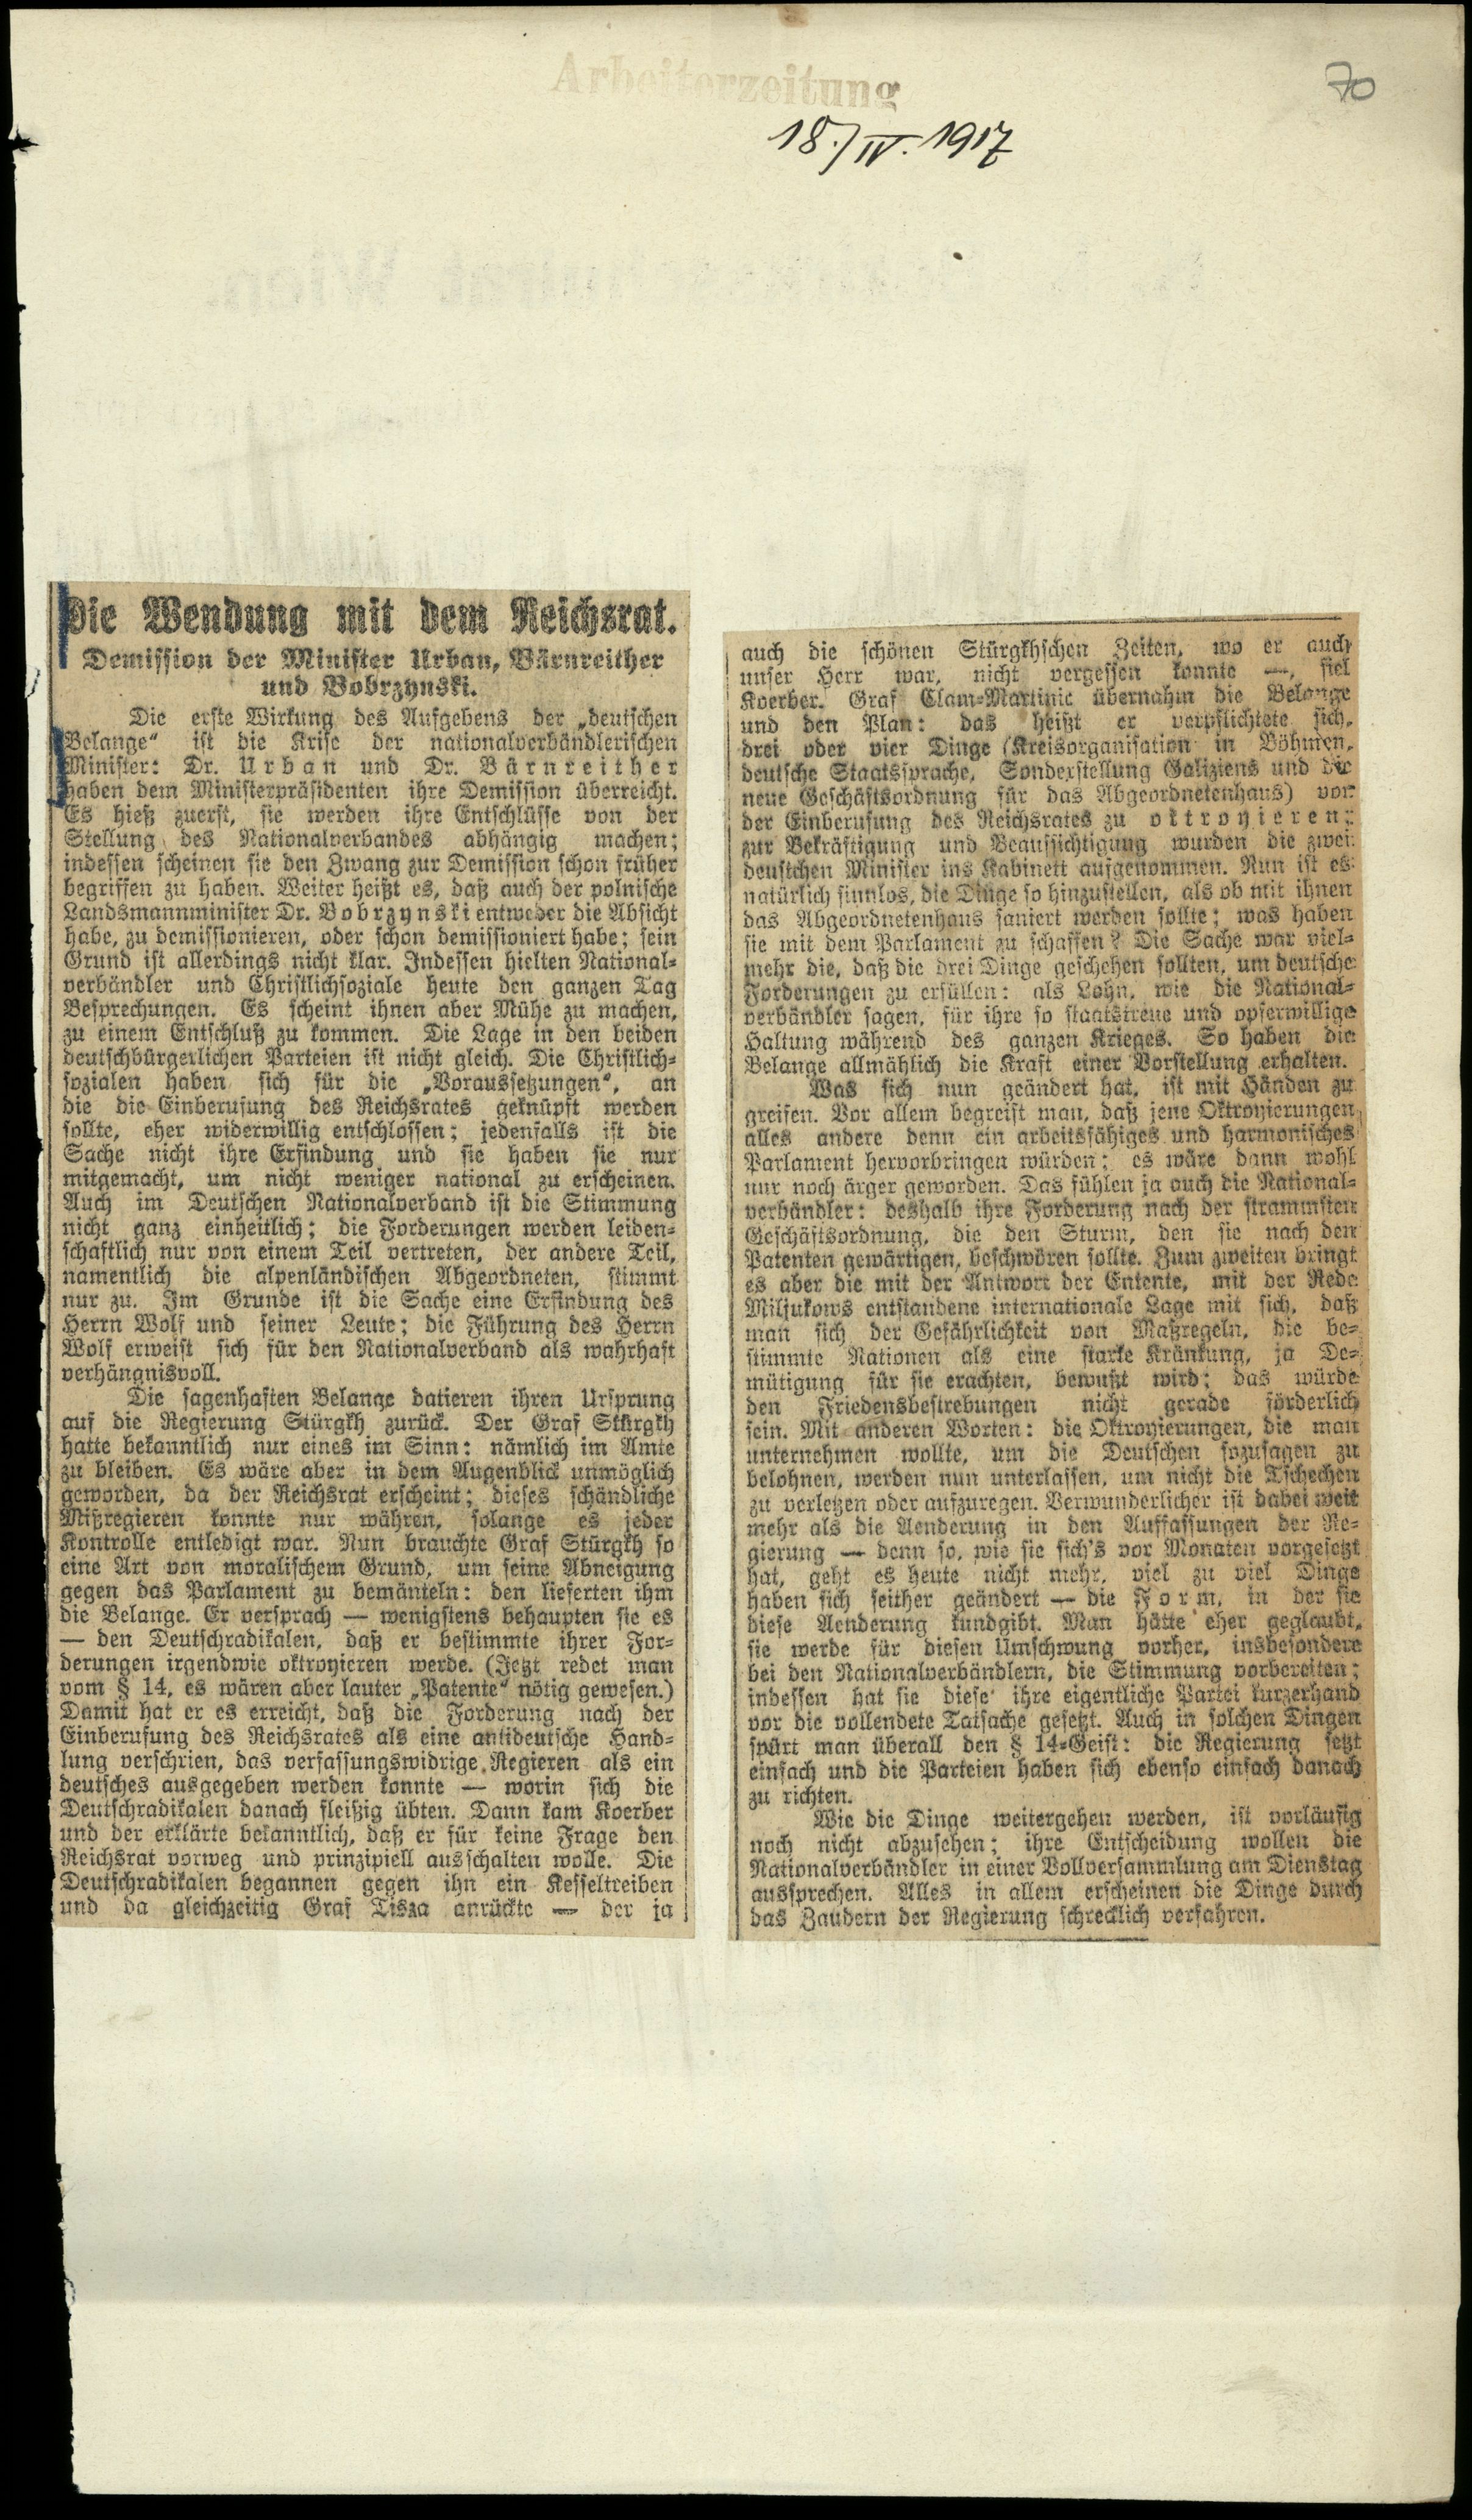 Arbeiterzeitung
70
18./IV. 1917
Die Wendung mit dem Reichsrat.
Demission der Minister Urban, Bärnreither
und Bobrzynski.
Die erste Wirkung des Aufgebens der „deutschen
Belange“ ist die Krise der nationalverbändlerischen
Minister: Dr. Urban und Dr. Bärnreither
haben dem Ministerpräsidenten ihre Demission überreicht.
Es hieß zuerst, sie werden ihre Entschlüsse von der
Stellung des Nationalverbandes abhängig machen;
indessen scheinen sie den Zwang zur Demission schon früher
begriffen zu haben. Weiter heißt es, daß auch der polnische
Landsmannminister Dr. Bobrzynski entweder die Absicht
habe, zu demissionieren, oder schon demissioniert habe; sein
Grund ist allerdings nicht klar. Indessen hielten National-
verbändler und Christlichsoziale heute den ganzen Tag
Besprechungen. Es scheint ihnen aber Mühe zu machen,
zu einem Entschluß zu kommen. Die Lage in den beiden
deutschbürgerlichen Parteien ist nicht gleich. Die Christlich-
sozialen haben sich für die „Voraussetzungen“, an
die die Einberufung des Reichsrates geknüpft werden
sollte, eher widerwillig entschlossen; jedenfalls ist die
Sache nicht ihre Erfindung und sie haben sie nur
mitgemacht, um nicht weniger national zu erscheinen.
Auch im Deutschen Nationalverband ist die Stimmung
nicht ganz einheitlich; die Forderungen werden leiden-
schaftlich nur von einem Teil vertreten, der andere Teil,
namentlich die alpenländischen Abgeordneten, stimmt
nur zu. Im Grunde ist die Sache eine Erfindung des
Herrn Wolf und seiner Leute; die Führung des Herrn
Wolf erweist sich für den Nationalverband als wahrhaft
verhängnisvoll.
Die sagenhaften Belange datieren ihren Ursprung
auf die Regierung Stürgkh zurück. Der Graf Stürgkh
hatte bekanntlich nur eines im Sinn: nämlich im Amte
zu bleiben. Es wäre aber in dem Augenblick unmöglich
geworden, da der Reichsrat erscheint; dieses schändliche
Mißregieren konnte nur währen, solange es jeder
Kontrolle entledigt war. Nun brauchte Graf Stürgkh so
eine Art von moralischem Grund, um seine Abneigung
gegen das Parlament zu bemänteln: den lieferten ihm
die Belange. Er versprach — wenigstens behaupten sie es
— den Deutschradikalen, daß er bestimmte ihrer For-
derungen irgendwie oktroyieren werde. (Jetzt redet man
vom § 14, es wären aber lauter „Patente“ nötig gewesen.)
Damit hat er es erreicht, daß die Forderung nach der
Einberufung des Reichsrates als eine antideutsche Hand-
lung verschrien, das verfassungswidrige Regieren als ein
deutsches ausgegeben werden konnte — worin sich die
Deutschradikalen danach fleißig übten. Dann kam Koerber
und der erklärte bekanntlich, daß er für keine Frage den
Reichsrat vorweg und prinzipiell ausschalten wolle. Die
Deutschradikalen begannen gegen ihn ein Kesseltreiben
und da gleichzeitig Graf Tisza anrückte — der ja
auch die schönen Stürgkhschen Zeiten, wo er auch
unser Herr war, nicht vergessen konnte —, fiel
Koerber. Graf Clam-Martinic übernahm die Belange
und den Plan: das heißt er verpflichtete sich,
drei oder vier Dinge (Kreisorganisation in Böhmen,
deutsche Staatssprache, Sonderstellung Galiziens und die
neue Geschäftsordnung für das Abgeordnetenhaus) vor
der Einberufung des Reichsrates zu oktroyieren;
zur Bekräftigung und Beaufsichtigung wurden die zwei
deustchen Minister ins Kabinett aufgenommen. Nun ist es
natürlich sinnlos, die Dinge so hinzustellen, als ob mit ihnen
das Abgeordnetenhaus saniert werden sollte; was haben
sie mit dem Parlament zu schaffen? Die Sache war viel-
mehr die, daß die drei Dinge geschehen sollten, um deutsche
Forderungen zu erfüllen: als Lohn, wie die National-
verbändler sagen, für ihre so staatstreue und opferwillige
Haltung während des ganzen Krieges. So haben die
Belange allmählich die Kraft einer Vorstellung erhalten.
Was sich nun geändert hat, ist mit Händen zu
greifen. Vor allem begreift man, daß jene Oktroyierungen
alles andere denn ein arbeitsfähiges und harmonisches
Parlament hervorbringen würden; es wäre dann wohl
nur noch ärger geworden. Das fühlen ja auch die National-
verbändler: deshalb ihre Forderung nach der strammsten
Geschäftsordnung, die den Sturm, den sie nach den
Patenten gewärtigen, beschwören sollte. Zum zweiten bringt
es aber die mit der Antwort der Entente, mit der Rede
Miljukows entstandene internationale Lage mit sich, daß
man sich der Gefährlichkeit von Maßregeln, die be-
stimmte Nationen als eine starke Kränkung, ja De-
mütigung für sie erachten, bewußt wird; das würde
den Friedensbestrebungen nicht gerade förderlich
sein. Mit anderen Worten: die Oktroyierungen, die man
unternehmen wollte, um die Deutschen sozusagen zu
belohnen, werden nun unterlassen, um nicht die Tschechen
zu verletzen oder aufzuregen. Verwunderlicher ist dabei weit
mehr als die Aenderung in den Auffassungen der Re-
gierung — denn so, wie sie sich's vor Monaten vorgesetzt
hat, geht es heute nicht mehr, viel zu viel Dinge
haben sich seither geändert — die Form, in der sie
diese Aenderung kundgibt. Man hätte eher geglaubt,
sie werde für diesen Umschwung vorher, insbesondere
bei den Nationalverbändlern, die Stimmung vorbereiten;
indessen hat sie diese ihre eigentliche Partei kurzerhand
vor die vollendete Tatsache gesetzt. Auch in solchen Dingen
spürt man überall den § 14-Geist: die Regierung setzt
einfach und die Parteien haben sich ebenso einfach danach
zu richten.
Wie die Dinge weitergehen werden, ist vorläufig
noch nicht abzusehen; ihre Entscheidung wollen die
Nationalverbändler in einer Vollversammlung am Dienstag
aussprechen. Alles in allem erscheinen die Dinge durch
das Zaudern der Regierung schrecklich verfahren.